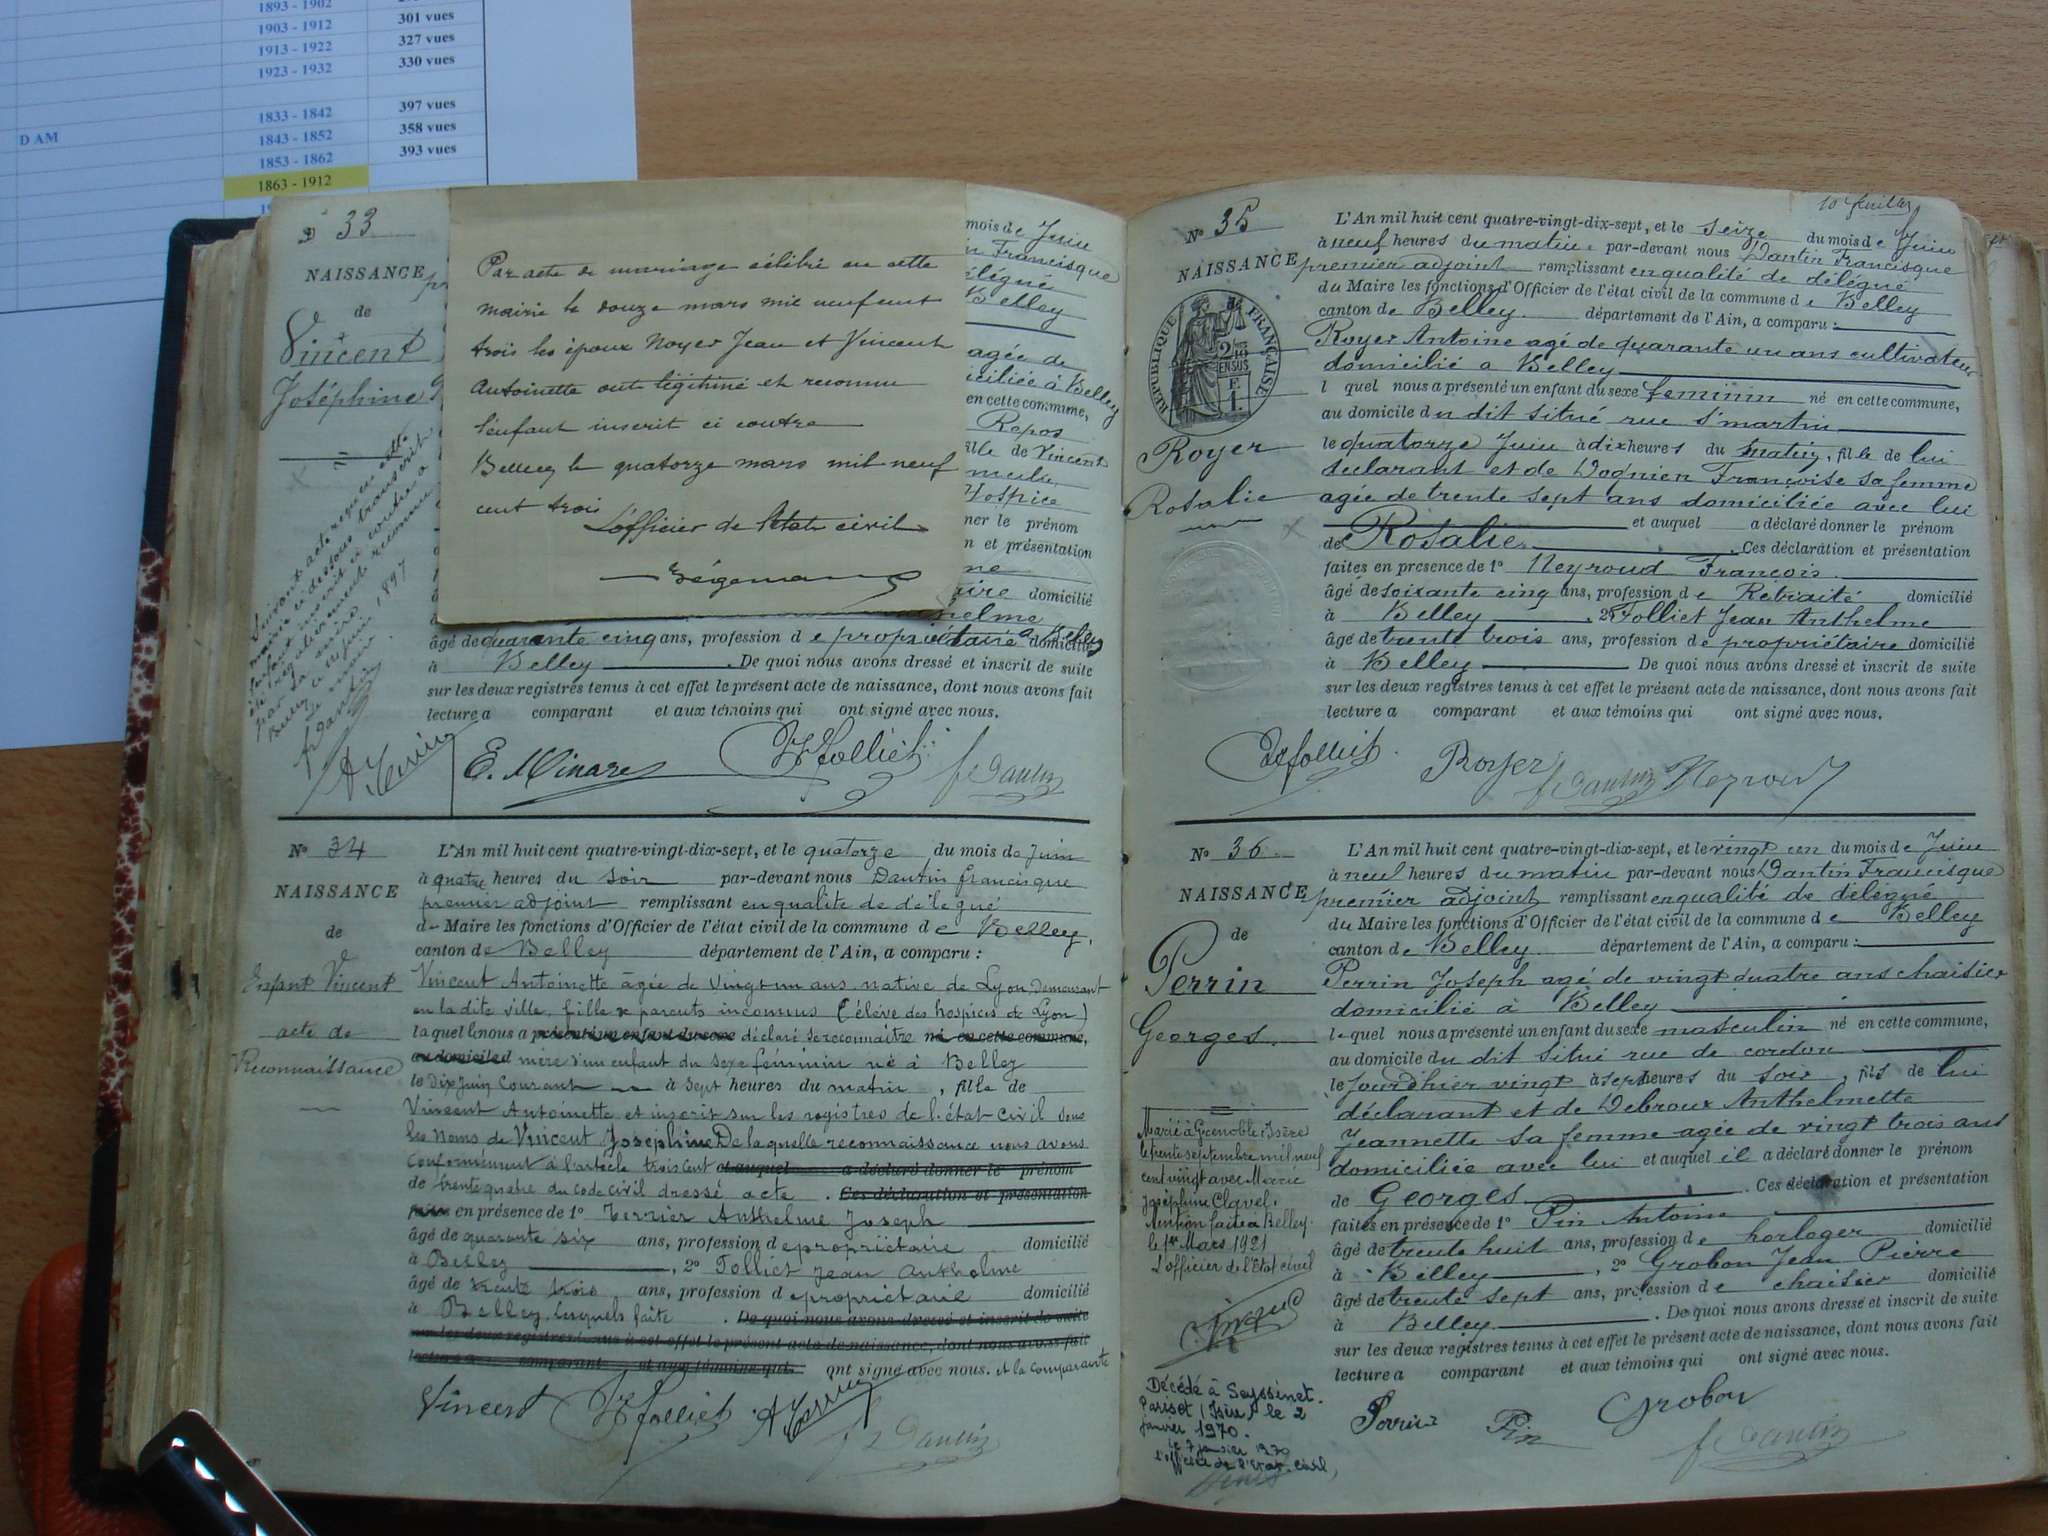 1893 - 1902
1903 - 1912 301 vues
1913 - 1922 327 vues
1923 - 1932 330 vues
1833 - 1842 397 vues
D AM 1843 - 1852 358 vues
1853 - 1862 393 vues
1863 - 1912
33
NAISSANCE
de
Vincent
Joséphine
Par acte de mariage célébré en cette
mairie le douze mars mil neuf cent
trois les époux Noyer Jean et Vincent
Antoinette ont légitimé et reconnu
l'enfant inscrit ci contre
Belley le quatorze mars mil neuf
cent trois
L'officier de l'état civil
mois de Juin
Francisque
délégué
Belley
agée de
domiciliée à Belley
en cette commune,
Repos
fille de Vincent
Hospice
donner le prénom
et présentation
domicilié
âgé de quarante cinq ans, profession de propriétaire à Belley domicilié
à Belley. De quoi nous avons dressé et inscrit de suite
sur les deux registres tenus à cet effet le présent acte de naissance, dont nous avons fait
lecture a comparant et aux témoins qui ont signé avec nous.
Suivant acte reçu en cette
mairie ci dessous transcrit
l'enfant inscrit ci contre a
été régulièrement reconnu
par sa mère
Belley 1897
E. Minare JA Folliet fr Dantin
No 34
NAISSANCE
de
Enfant Vincent
acte de
Reconnaissance
L'An mil huit cent quatre-vingt-dix-sept, et le quatorze du mois de Juin
à quatre heures du soir par-devant nous Dantin francisque
premier adjoint remplissant en qualité de délégué
de Maire les fonctions d'Officier de l'état civil de la commune de Belley,
canton de Belley département de l'Ain, a comparu :
Vincent Antoinette âgée de Vingt un ans native de Lyon Demeurant
en la dite ville, fille de parents inconnus (élève des hospices de Lyon)
laquelle nous a présenté un enfant du sexe déclaré se reconnaitre né en cette commune,
au domicile d mère d'un enfant du sexe féminin né à Belley
le Dix Juin Courant à sept heures du matin, fille de
Vincent Antoinette et inscrit sur les registres de l'état civil sous
les noms de Vincent Joséphine De laquelle reconnaissance nous avons
conformément à l'article trois cent et auquel a déclaré donner le prénom
de trente quatre du code civil dressé acte. Ces déclaration et présentation
faites en présence de 1º Terrier Anthelme Joseph
âgé de quarante six ans, profession de propriétaire domicilié
à Belley, 2º Folliet Jean Anthelme
âgé de trente trois ans, profession de propriétaire domicilié
à Belley lesquels faite. De quoi nous avons dressé et inscrit de suite
sur les deux registres tenus à cet effet le présent acte de naissance, dont nous avons fait
lecture a comparant et aux témoins qui ont signé avec nous. et la comparante
Vincent JA Folliet fr Dantin
10 feuillet
No 35
NAISSANCE
RÉPUBLIQUE FRANÇAISE
Royer
Rosalie
L'An mil huit cent quatre-vingt-dix-sept, et le seize du mois de Juin
à neuf heures du matin par-devant nous Dantin Francisque
premier adjoint remplissant en qualité de délégué
du Maire les fonctions d'Officier de l'état civil de la commune de Belley
canton de Belley département de l'Ain, a comparu :
Royer Antoine agé de quarante un ans cultivateur
domicilié a Belley
lequel nous a présenté un enfant du sexe feminin né en cette commune,
au domicile du dit situé rue St martin
le quatorze Juin à dix heures du matin, fille de lui
declarant et de Dognien Françoise sa femme
agée de trente sept ans domiciliée avec lui
et auquel a déclaré donner le prénom
de Rosalie. Ces déclaration et présentation
faites en présence de 1º Neyroud François
âgé de soixante cinq ans, profession de Retraité domicilié
à Belley, 2º Folliet Jean Anthelme
âgé de trente trois ans, profession de propriétaire domicilié
à Belley De quoi nous avons dressé et inscrit de suite
sur les deux registres tenus à cet effet le présent acte de naissance, dont nous avons fait
lecture a comparant et aux témoins qui ont signé avec nous.
JA folliet Royer fr Dantin Neyroud
No 36
NAISSANCE
de
Perrin
Georges
L'An mil huit cent quatre-vingt-dix-sept, et le vingt un du mois de Juin
à neuf heures du matin par-devant nous Dantin Francisque
premier adjoint remplissant en qualité de délégué
du Maire les fonctions d'Officier de l'état civil de la commune de Belley
canton de Belley département de l'Ain, a comparu :
Perrin Joseph agé de vingt quatre ans chaisier
domicilié à Belley
lequel nous a présenté un enfant du sexe masculin né en cette commune,
au domicile du dit situé rue de cordon
le jourd'hier vingt à sept heures du soir, fils de lui
déclarant et de Debroux Anthelmette
Jeannette sa femme agée de vingt trois ans
domiciliée avec lui et auquel il a déclaré donner le prénom
de Georges. Ces déclaration et présentation
faites en présence de 1º Pin Antoine
âgé de trente huit ans, profession de horloger domicilié
à Belley, 2º Grobon Jean Pierre
âgé de trente sept ans, profession de chaisier domicilié
à Belley. De quoi nous avons dressé et inscrit de suite
sur les deux registres tenus à cet effet le présent acte de naissance, dont nous avons fait
lecture a comparant et aux témoins qui ont signé avec nous.
Marié à Grenoble Isère
le trente septembre mil neuf
cent vingt avec Marie
Joséphine Clavel.
Mention faite à Belley
le 1er Mars 1921
L'officier de l'Etat civil
Décédé à Seyssinet.
Pariset (Isère) le 2
janvier 1970.
Le 7 janvier 1970
L'officier de l'Etat civil,
Perrin Pin Grobon
fr Dantin